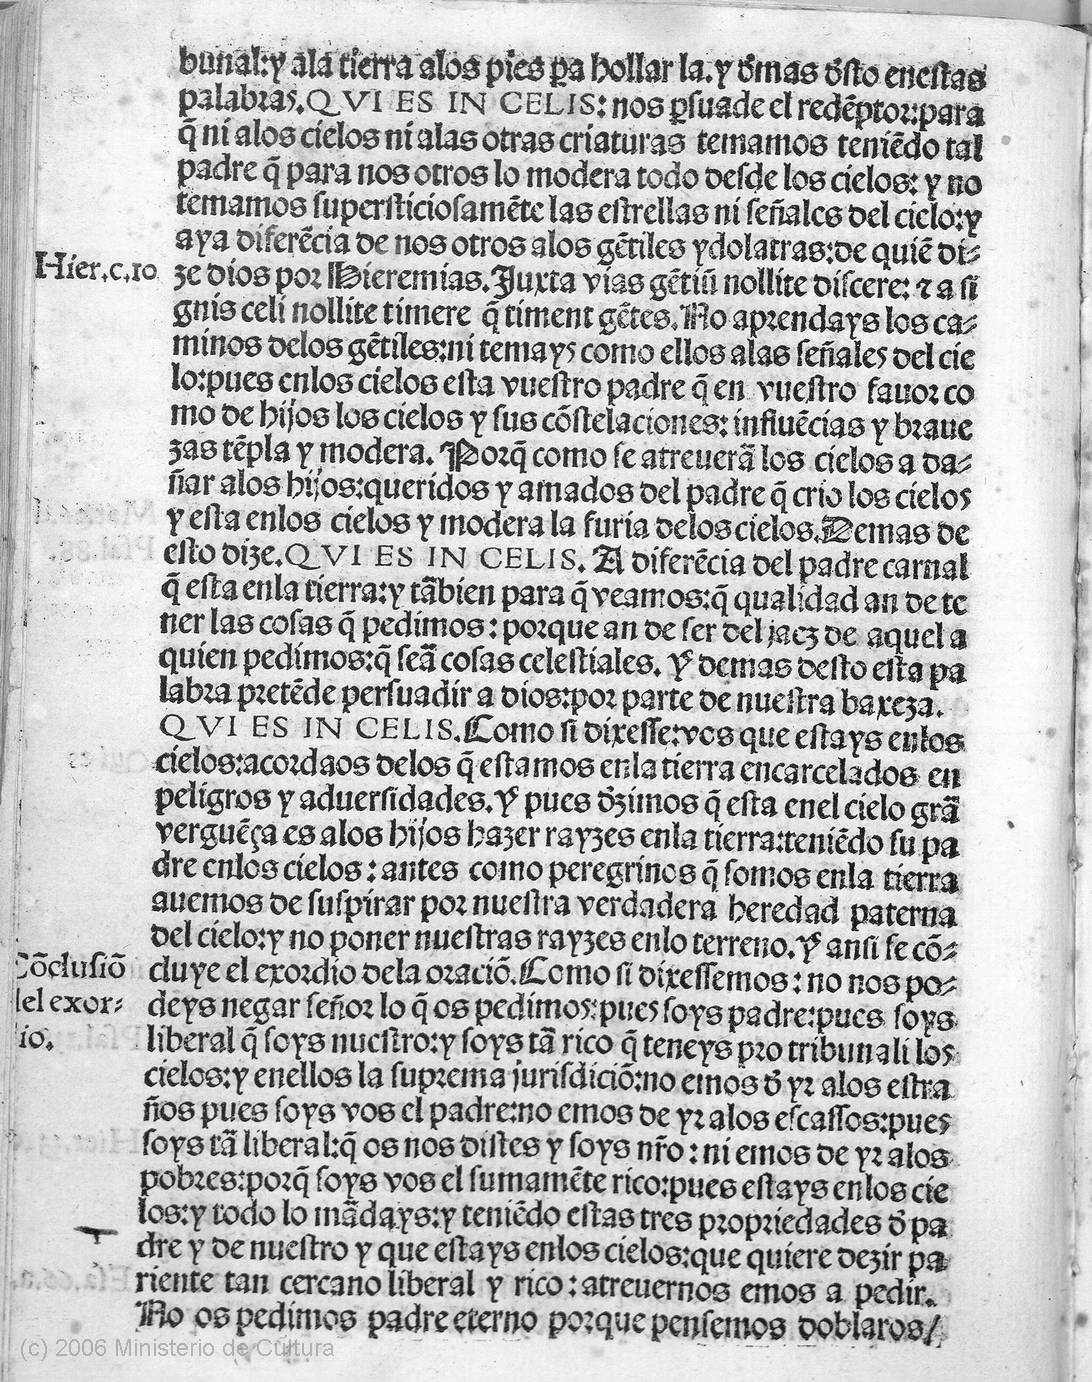 bunal:y ala tierra alos pies ꝑa hollar la.y đmas đsto enestas
palabras.QVI ES IN CELIS: nos ꝑsuade el redẽptor:para
q̃ ni alos cielos ni alas otras criaturas temamos teniẽdo tal
padre q̃ para nos otros lo modera todo desde los cielos: y no
temamos supersticiosamẽte las estrellas ni señales del cielo:y
aya diferẽcia de nos otros alos gẽtiles ydolatras:de quiẽ di-
Hier.c.10
ze dios por Hieremias.Juxta vias gẽtiũ nollite discere: ⁊ a si
gnis celi nollite timere q̃ timent gẽtes.No aprendays los ca-
minos delos gẽtiles:ni temays como ellos alas señales del cie
lo:pues enlos cielos esta vuestro padre q̃ en vuestro fauor co
mo de hijos los cielos y sus cõstelaciones: influẽcias y braue
zas tẽpla y modera. Porq̃ como se atreuerã los cielos a da-
ñar alos hijos:queridos y amados del padre q̃ crio los cielos
y esta enlos cielos y modera la furia delos cielos.Demas de
esto dize.QVI ES IN CELIS. A diferẽcia del padre carnal
q̃ esta enla tierra:y tãbien para q̃ veamos:q̃ qualidad an de te
ner las cosas q̃ pedimos: porque an de ser del jaez de aquel a
quien pedimos:q̃ seã cosas celestiales. Y demas desto esta pa
labra pretẽde persuadir a dios:por parte de nuestra baxeza.
QVI ES IN CELIS.Como si dixesse:vos que estays enlos
cielos:acordaos delos q̃ estamos enla tierra encarcelados en
peligros y aduersidades.Y pues đzimos q̃ esta enel cielo grã
verguẽça es alos hijos hazer rayzes enla tierra:teniẽdo su pa
dre enlos cielos: antes como peregrinos q̃ somos enla tierra
auemos de suspirar por nuestra verdadera heredad paterna
del cielo:y no poner nuestras rayzes enlo terreno.Y ansi se cõ-
Cõclusiõ
del exor-
dio.
cluye el exordio dela oraciõ.Como si dixessemos: no nos po-
deys negar señor lo q̃ os pedimos:pues soys padre:pues soys
liberal q̃ soys nuestro:y soys tã rico q̃ teneys pro tribunali los
cielos:y enellos la suprema jurisdiciõ:no emos đ yr alos estra
ños pues soys vos el padre:no emos de yr alos escassos:pues
soys tã liberal:q̃ os nos distes y soys nr̃o: ni emos de yr alos
pobres:porq̃ soys vos el sumamẽte rico:pues estays enlos cie
los:y todo lo mãdays:y teniẽdo estas tres propriedades đ pa
dre y de nuestro y que estays enlos cielos:que quiere dezir pa
riente tan cercano liberal y rico: atreuernos emos a pedir.
No os pedimos padre eterno porque pensemos doblaros/
(c) 2006 Ministerio de Cultura